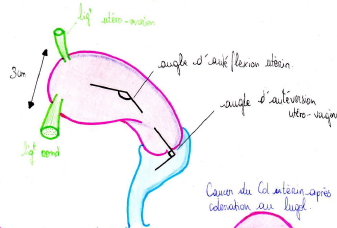 ligᵗ utéro-ovarien
3cm
angle d'anté flexion utérin.
angle d'antéversion
utéro-vagin
ligᵗ rond
Cancer du Col utérin après
coloration au lugol.